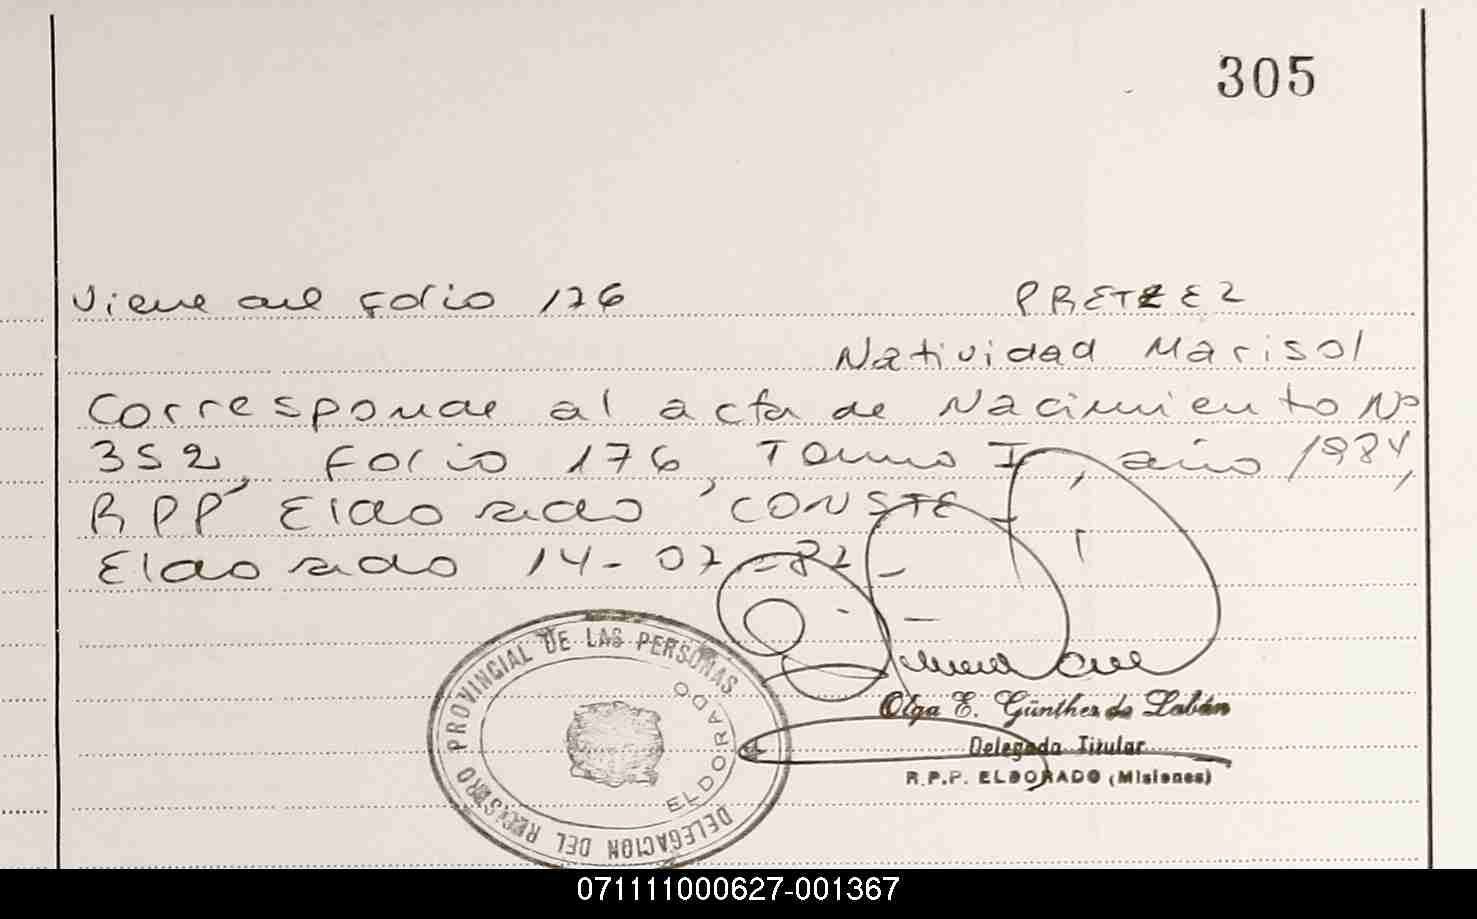 305
Viene del folio 176 PRETZEL
Natividad Marisol
Corresponde al acta de Nacimiento Nº
352, Folio 176, Tomo I, año 1984,
RPP Eldorado, CONSTE
Eldorado 14-07-87-
DELEGACION DEL REGISTRO PROVINCIAL DE LAS PERSONAS
ELDORADO
Olga E. Günther de Labán
Delegada Titular
R.P.P. ELDORADO (Misiones)
071111000627-001367